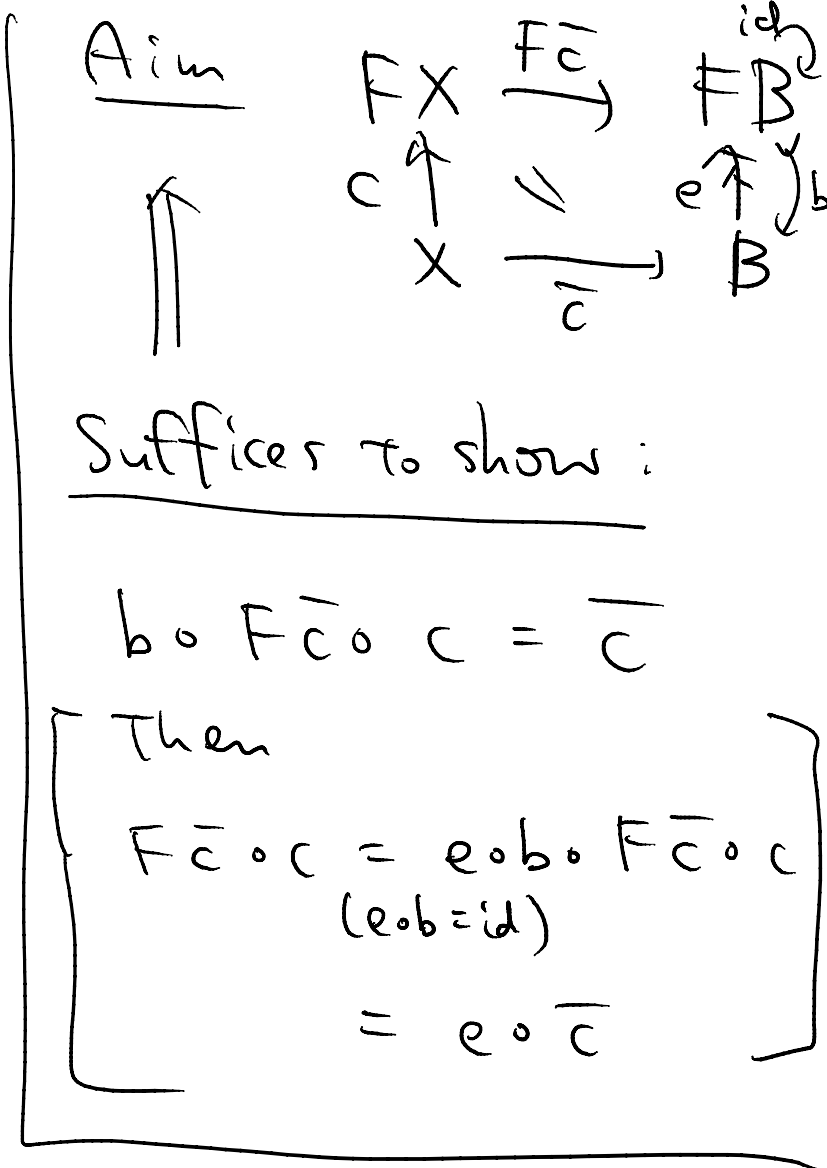 Aim FX Fc̄ FB id
c e b
X c̄ B
Suffices to show :
b∘ Fc̄∘ c = c̄
Then
Fc̄∘c = e∘b∘ Fc̄∘c
(e∘b=id)
= e∘c̄